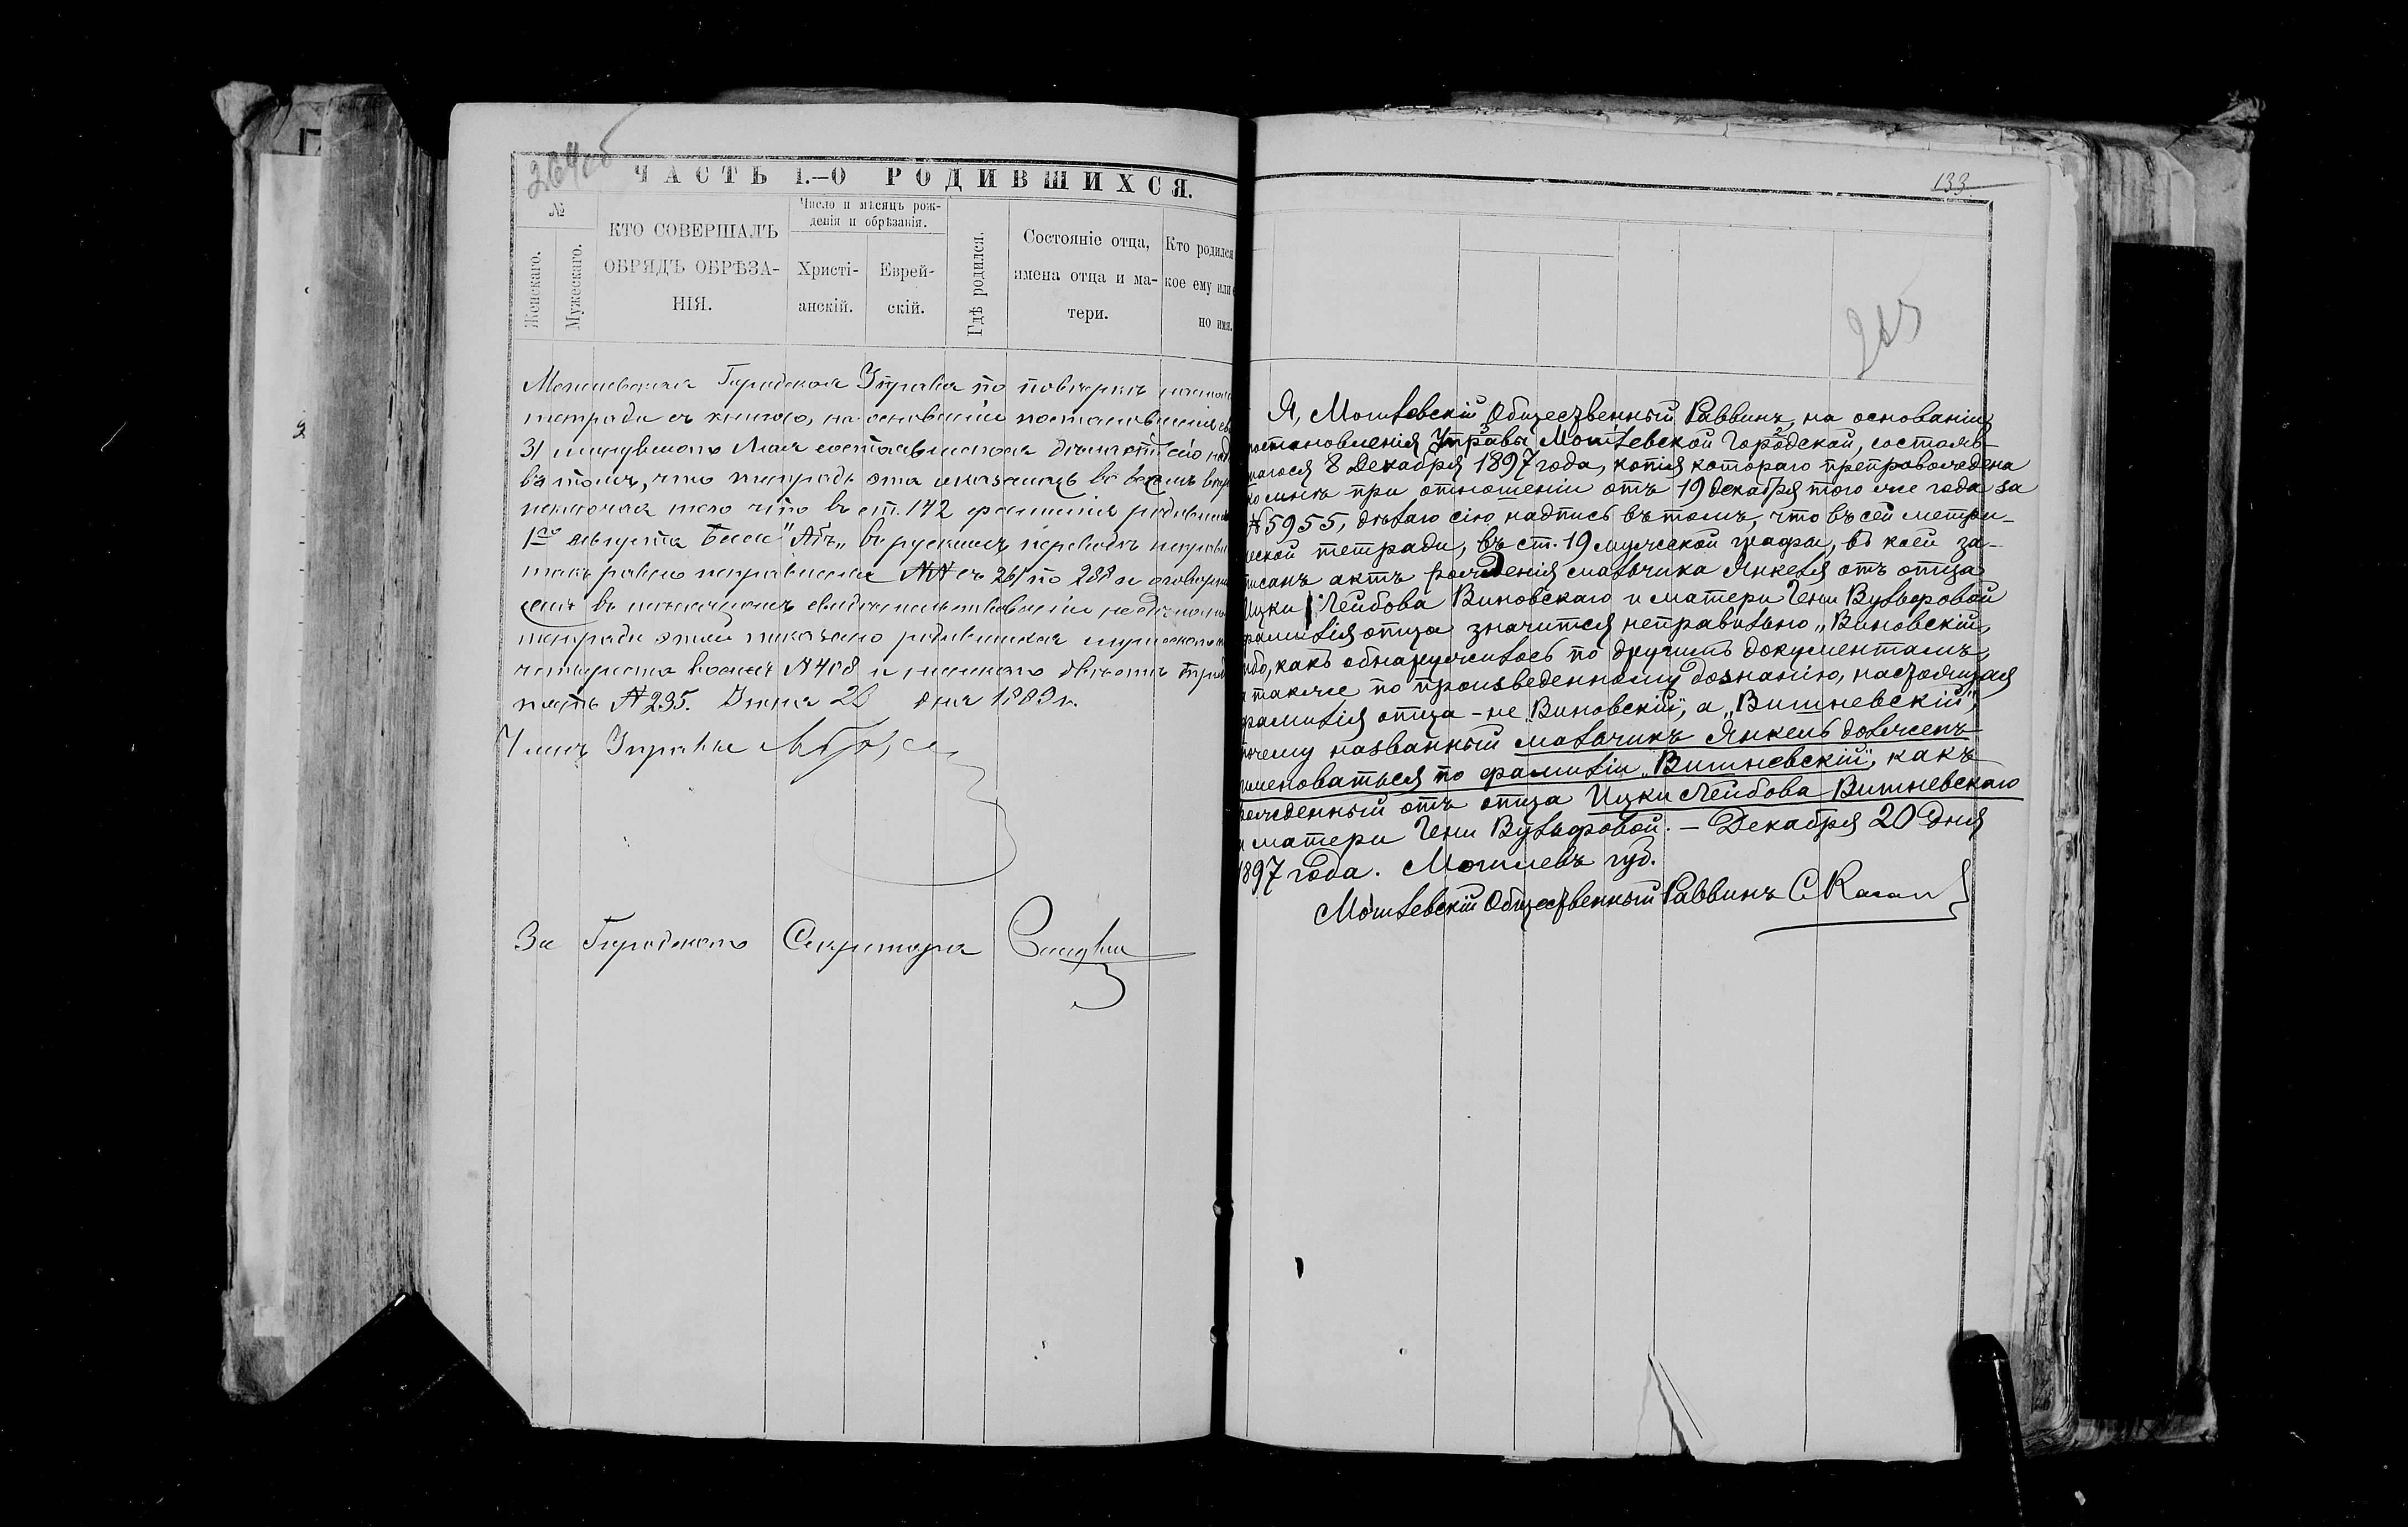 264об
ЧАСТЬ I.—О РОДИВШИХСЯ.
№
Женскаго.
Мужескаго.
КТО СОВЕРШАЛЪ
ОБРЯДЪ ОБРѢЗА-
НІЯ.
Число и мѣсяцъ рож-
денія и обрѣзанія.
Христі-
анскій.
Еврей-
скій.
Гдѣ родился.
Состояніе отца,
имена отца и ма-
тери.
Кто родился
кое ему или
но имя.
Могилевская Городская Управа по повѣркѣ
тетради съ книгою, на основаніи постановленія
31 минувшаго Мая состоявшагося дѣлаетъ сію
въ томъ, что тетрадь эта оказалась во всемъ
исключая того что въ ст. 142 фамилія
1го Августа Баси "Абъ" въ русскомъ переводѣ
такъ равно неправильно №№ съ 261 по 288 и
въ
тетради этой показано родившихся мужескаго
четыреста восемь №408 и женскаго двѣсти
пять №295. Іюня 20 дня 1889 г.
Членъ Управы
За Городскаго Секретаря
133
265
Я, Могилевскій Общественный Раввинъ, на основаніи
постановленія Управы Могилевской Городской, состояв-
шагося 8 Декабря 1897 года, копія котораго препровождена
ко мнѣ при отношеніи отъ 19 декабря того же года за
№5955, дѣлаю сію надпись въ томъ, что въ сей метри-
ческой тетради, въ ст. 19 мужеской графы, въ коей за-
писанъ актъ рожденія мальчика Янкеля отъ отца
Ицки Лейбова Виновскаго и матери Гени Вульфовой
фамилія отца значится неправильно „Виновскій,
ибо, какъ обнаружилось по другимъ документамъ,
а также по произведенному дознанію, настоящая
фамилія отца - не „Виновскій", а „Вишневскій",
почему названный мальчикъ Янкель долженъ
именоваться по фамиліи „Вишневскій", какъ
рожденный отъ отца Ицки Лейбова Вишневскаго
и матери Гени Вульфовой. — Декабря 20 дня
1897 года. Могилевъ губ.
Могилевскій Общественный Раввинъ С Каган